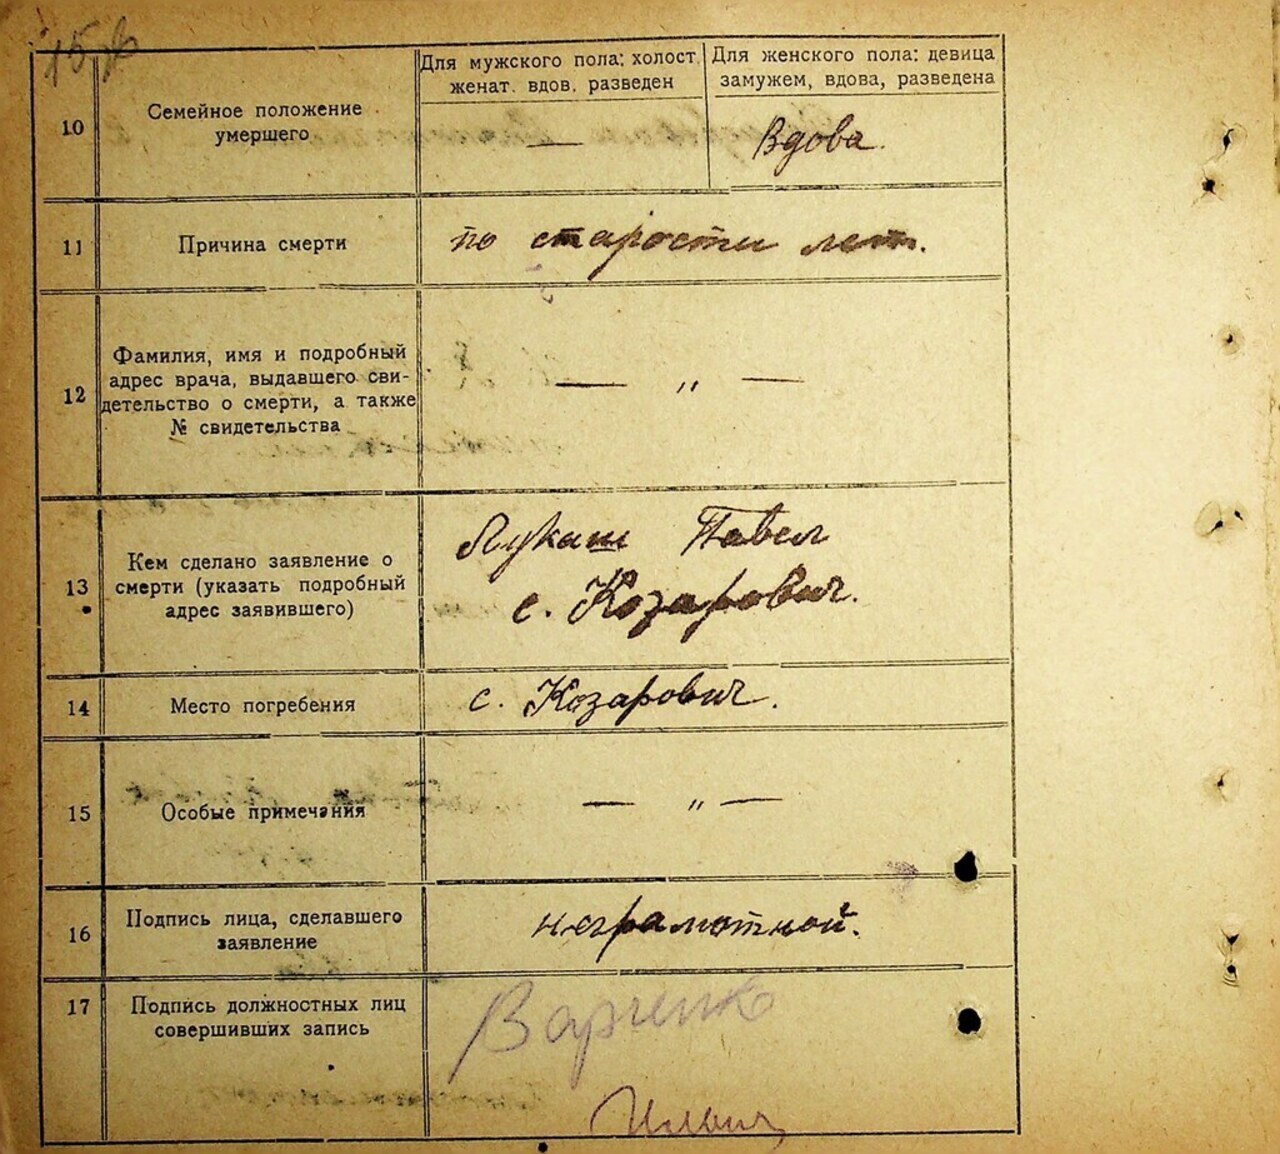 Для мужского пола: холост.
женат. вдов. разведен
Для женского пола: девица
замужем, вдова, разведена
10
Семейное положение
умершего
—
Вдова.
11
Причина смерти
по старости лет.
12
Фамилия, имя и подробный
адрес врача, выдавшего сви-
детельство о смерти, а также
№ свидетельства
— „ —
13
Кем сделано заявление о
смерти (указать подробный
адрес заявившего)
Лукаш Павел
с. Козарович.
14
Место погребения
с. Козарович.
15
Особые примечания
— „ —
16
Подпись лица, сделавшего
заявление
неграмотной.
17
Подпись должностных лиц
совершивших запись